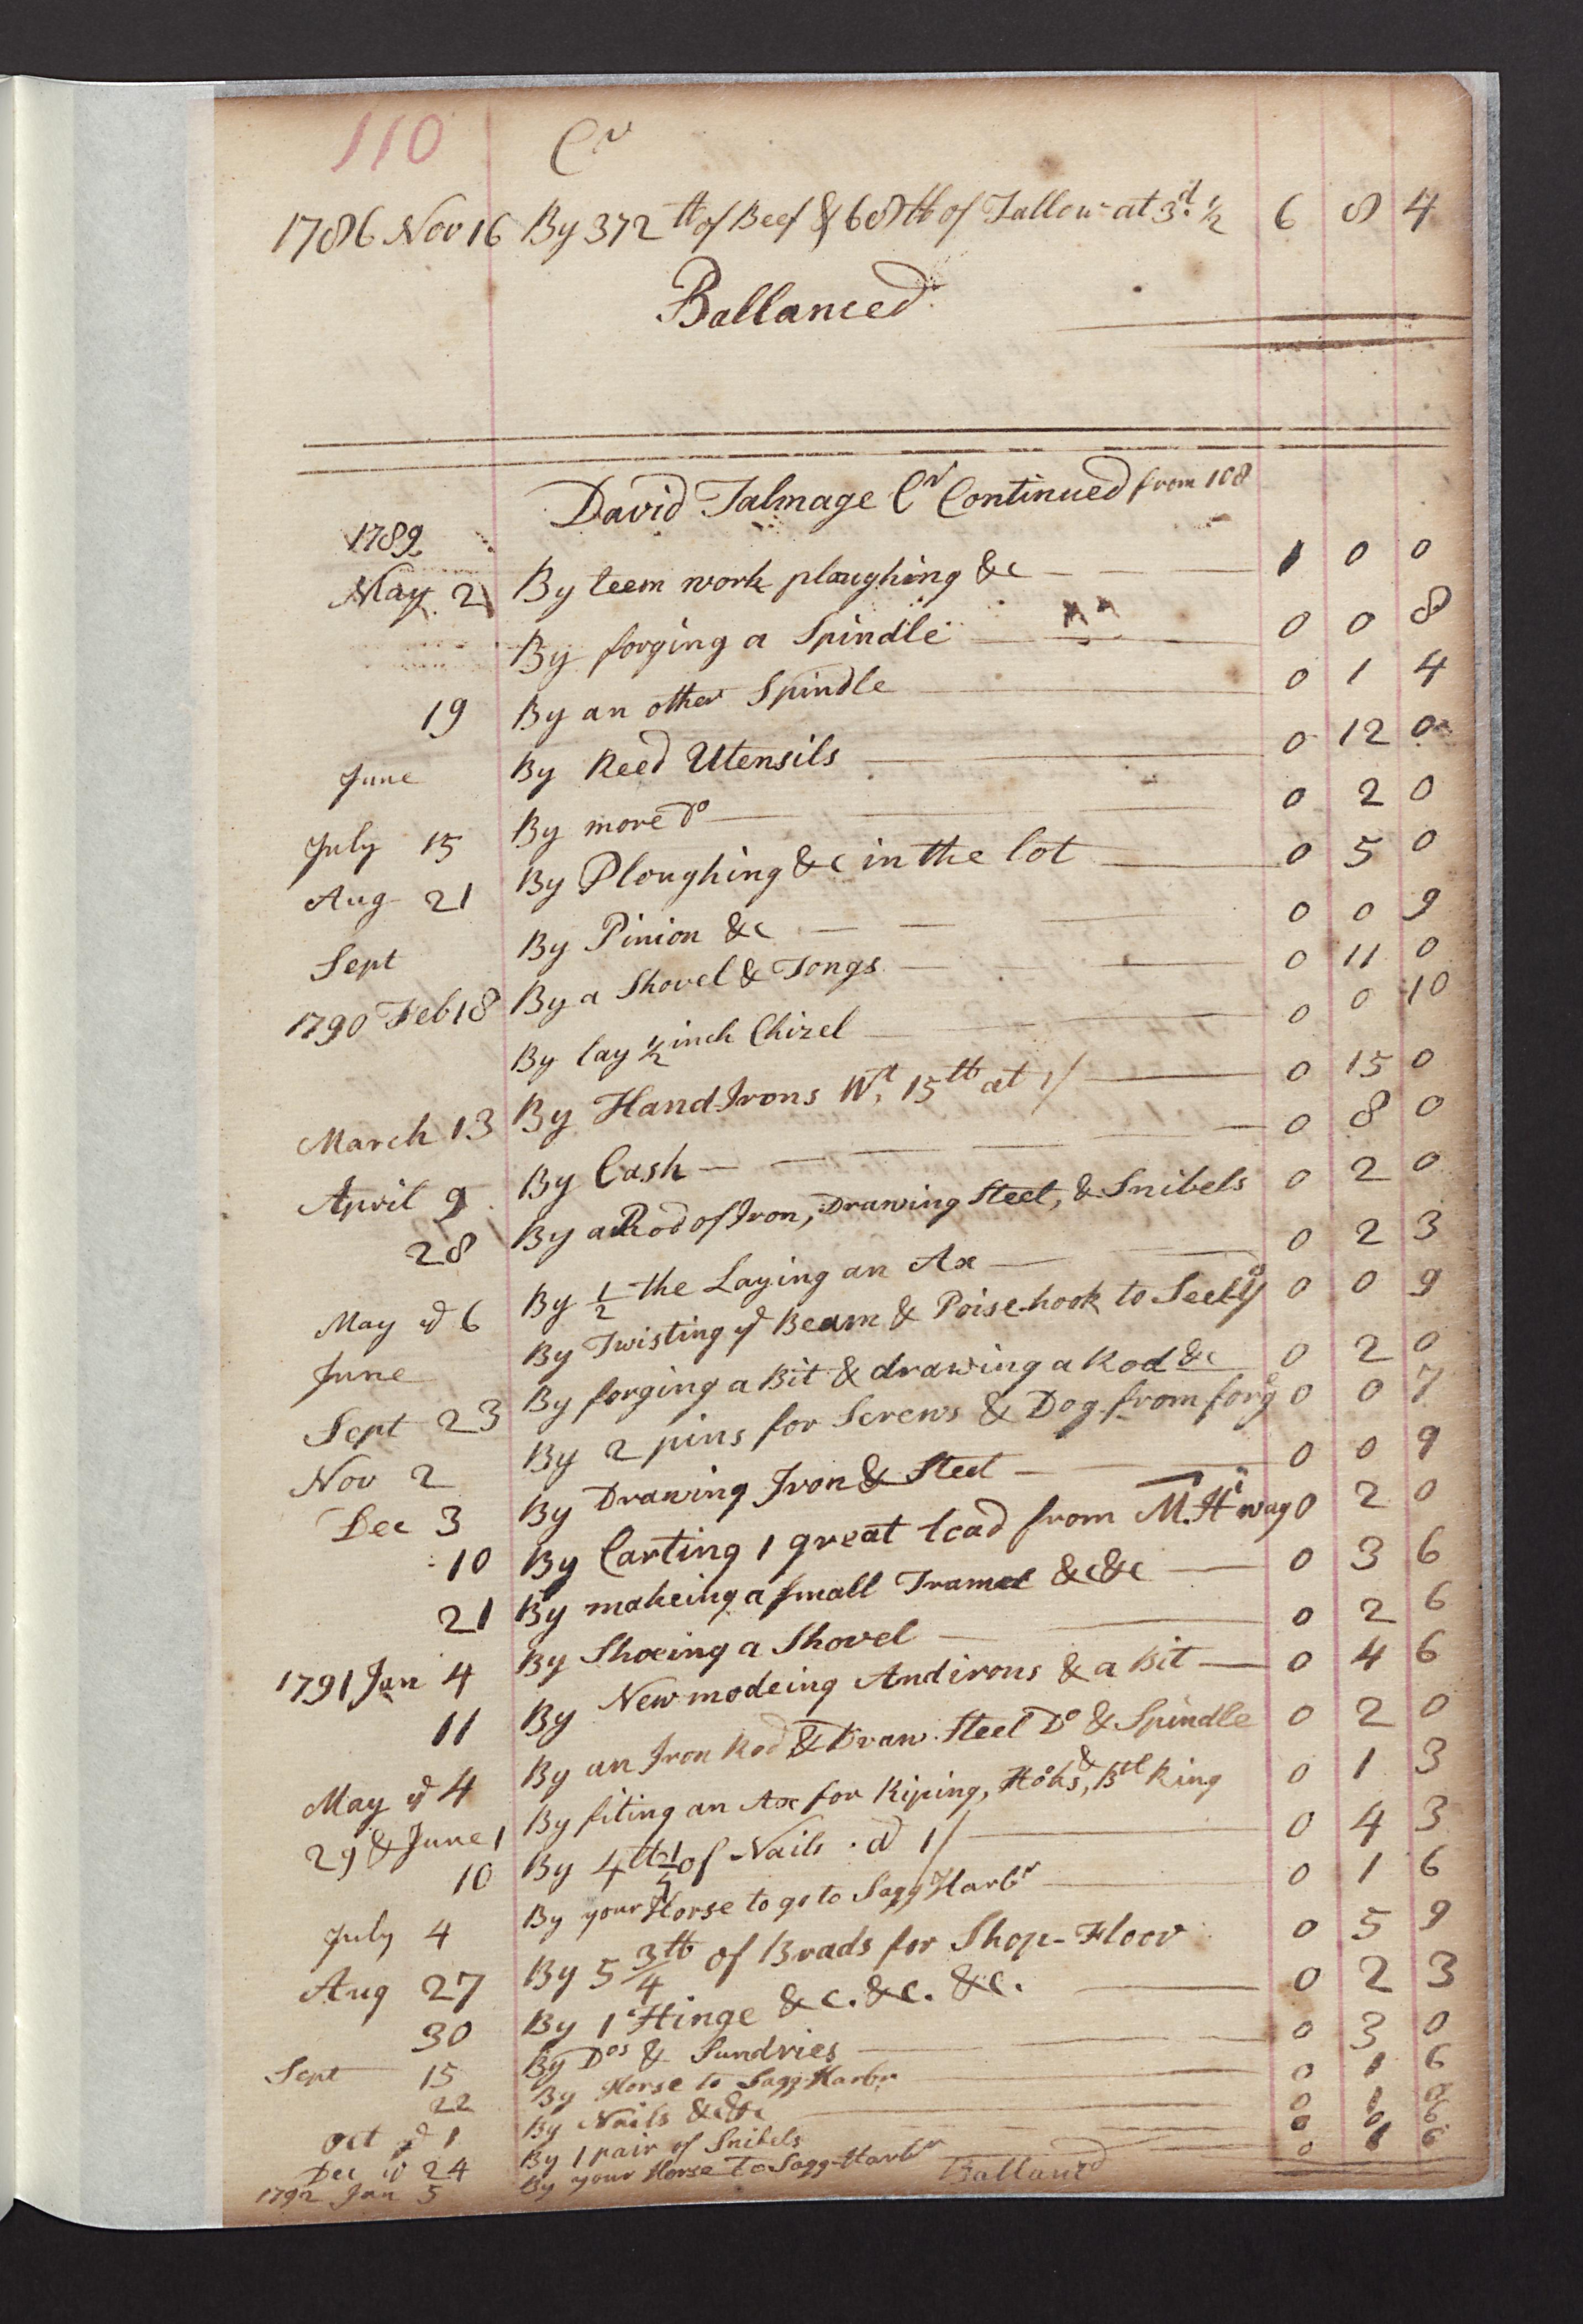 110 Cr
1786 Nov 16 By 372 lb of Beef & 68 lb of Tallow at 3d. ½ 6 8 4
Ballanced
David Talmage Cr Continued from 108
1789
May 21 By teem work ploughing &c 1 0 0
By forging a Spindle 0 0 8
19 By an other Spindle 0 1 4
June By Reed Utensils 0 12 0
July 15 By more Do 0 2 0
Aug 21 By Ploughing &c in the lot 0 5 0
Sept By Pinion &c 0 0 9
1790 Feb 18 By a Shovel & Tongs 0 11 0
By lay ½ inch Chizel 0 0 10
March 13 By Hand-Irons Wt. 15 lb at 1/ 0 15 0
April 9 By Cash 0 8 0
28 By a Rod of Iron, Drawing Steel, & Snibels 0 2 0
May ye 6 By ½ the Laying an Ax 0 2 3
June By Twisting ye Beam & Poise-hook to 0 0 9
Sept 23 By forging a Bit & drawing a Rod &c 0 2 0
Nov 2 By 2 pins for Screws & Dog from forg 0 0 7
Dec 3 By Drawing Iron & Steel 0 0 9
10 By Carting 1 great load from 0 2 0
21 By makeing a small Tramel &c &c 0 3 6
1791 Jan 4 By Shoeing a Shovel 0 2 6
11 By New modeing Andirons & a Bit 0 4 6
May ye 4 By an Iron Rod & Draw. Steel Do & Spindle 0 2 0
29 & June 1 By fiting an Ax for Riping, & Ring 0 1 3
10 By 4 lb ¼ of Nails. a 1/ 0 4 3
July 4 By your Horse to go to Sagg Harbr 0 1 6
Aug 27 By 5 ¾ lb of Brads for Shop-Floor 0 5 9
30 By 1 Hinge &c. &c. &c. 0 2 3
Sept 15 By Dos & Sundries 0 3 0
22 By Horse to Sagg-Harbr 0 1 6
Oct ye 1 By Nails &c &c 0 1
Dec ye 24 By 1 pair of Snibels 0 0 6
1792 Jan 5 By your Horse To Sagg-Harbr 0 1 6
Ballancd